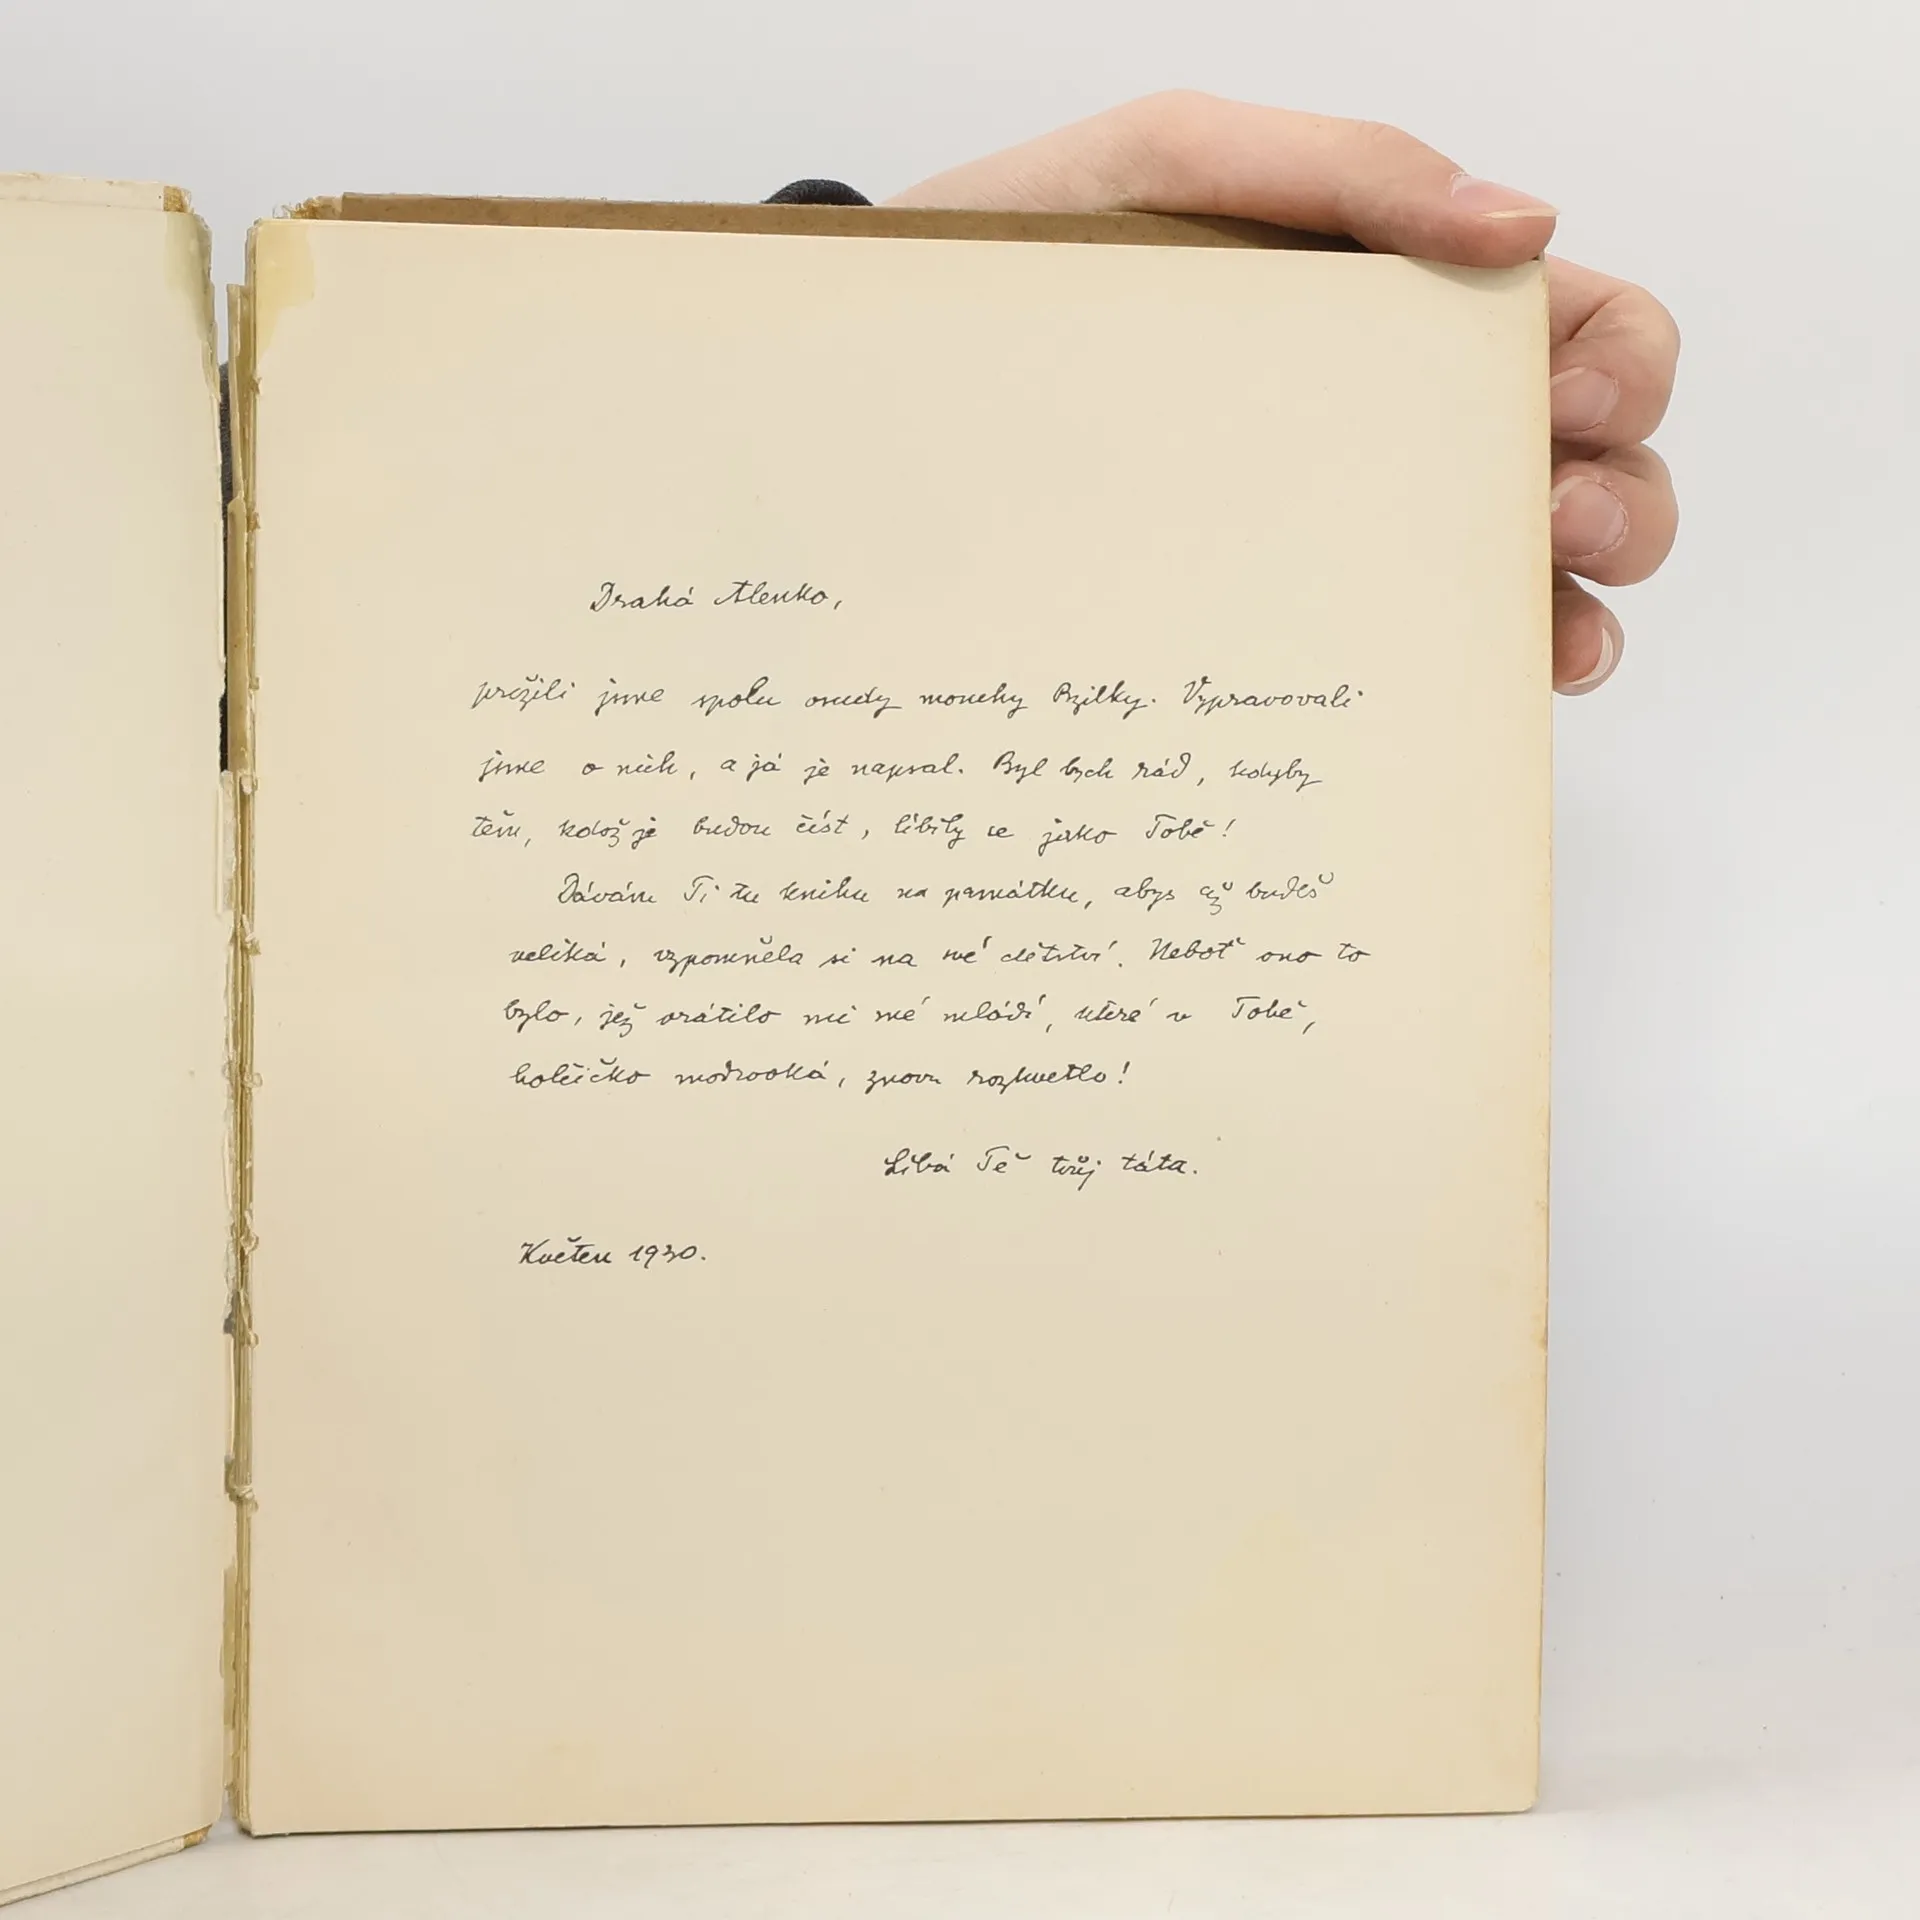 Drahá Alenko,
prožili jsme spolu osudy mouchy Bzilky. Vypravovali
jsme o nich, a já je napsal. Byl bych rád, kdyby
těm, kdož je budou číst, líbily se jako Tobě!
Dávám Ti tu knihu na památku, abys až budeš
veliká, vzpomněla si na své dětství. Neboť ono to
bylo, jež vrátilo mi mé mládí, které v Tobě,
holčičko modrooká, znovu rozkvetlo!
Líbá Tě tvůj táta.
Květen 1930.